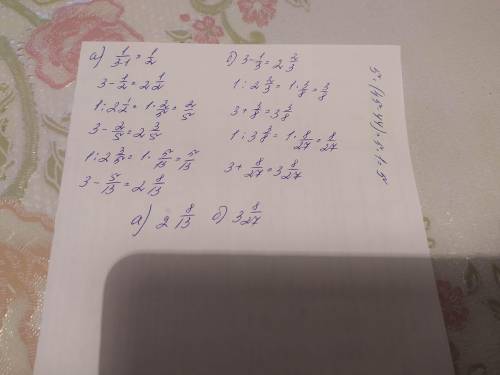 а) 1/(3-1) = 1/2
3 - 1/2 = 2 1/2
1 : 2 1/2 = 1 · 2/5 = 2/5
3 - 2/5 = 2 3/5
1 : 2 3/5 = 1 · 5/13 = 5/13
3 - 5/13 = 2 8/13
б) 3 - 1/3 = 2 2/3
1 : 2 2/3 = 1 · 3/8 = 3/8
3 + 3/8 = 3 3/8
1 : 3 3/8 = 1 · 8/27 = 8/27
3 + 8/27 = 3 8/27
а) 2 8/13 б) 3 8/27